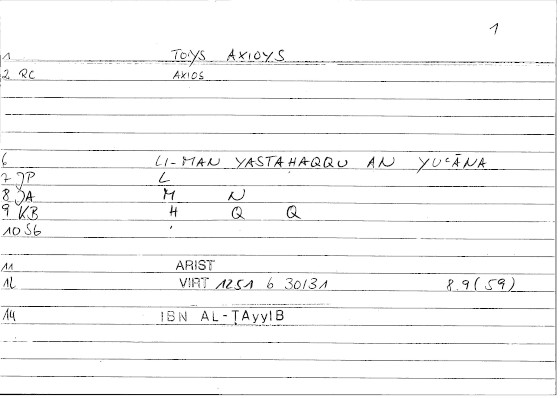 1
1 TOYS AXIOYS
2 RC AXIOS
6 LI-MAN YASTAHAQQU AN YUʿĀNA
7 JP L
8 JA M N
9 KB H Q Q
10 SG '
11 ARIST
12 VIRT 1251 b 30/31 8.9 (59)
14 IBN AL-ṬAyyIB